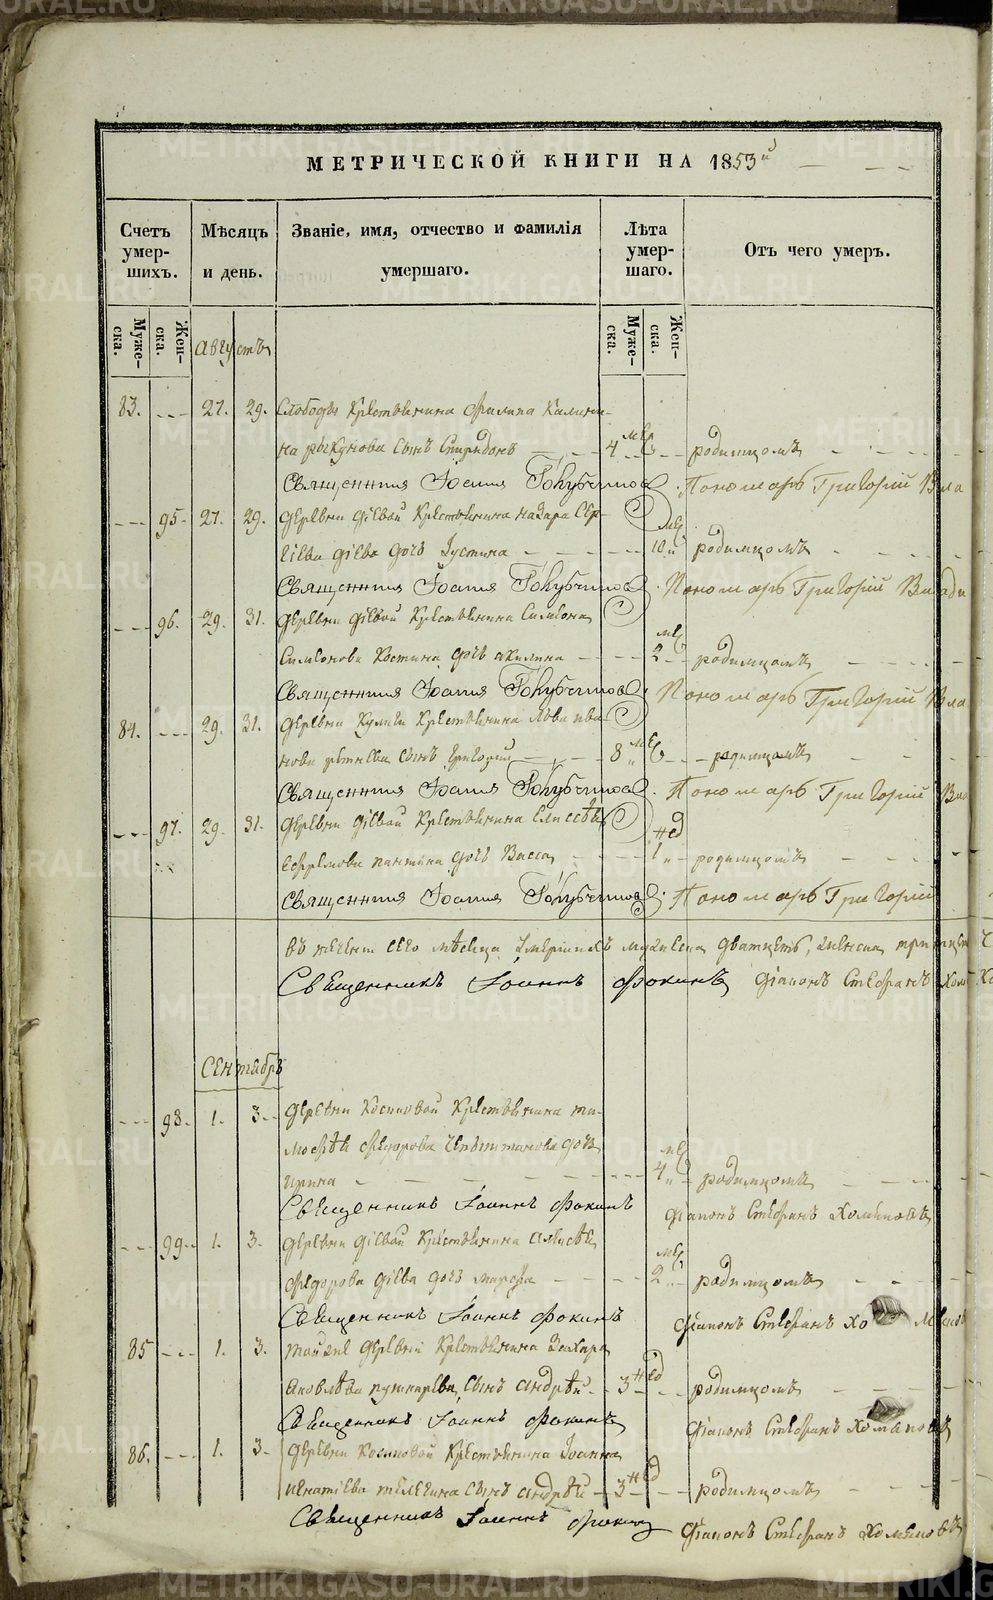 МЕТРИЧЕСКОЙ КНИГИ НА 1853й
Счетъ умер-шихъ.
Мѣсяцъ и день.
Званіе, имя, отчество и фамилія умершаго.
Лѣта умер-шаго.
Отъ чего умеръ.
Муже-ска.
Жен-ска.
Муже-ска.
Жен-ска.
Августъ
83. 27. 29. Слободы крестьянина Филипа Калини-
на Рыкунова сынъ Спиридонъ 4 мес родимцомъ
Священникъ Іоаннъ Пономарь Григорій
95. 27. 29. деревни Діевой крестьянина Назара Сер-
Діева дочь Іустина 10 мес родимцомъ
Священникъ Іоаннъ Пономарь Григорій
96. 29. 31. деревни Діевой крестьянина Симеона
Симеонова Костина дочь Акилина 2 мес родимцомъ
Священникъ Іоаннъ Пономарь Григорій
84. 29. 31. деревни крестьянина Льва Ива-
нова сынъ Григорій 8 мес родимцомъ
Священникъ Іоаннъ Пономарь Григорій
97. 29. 31. деревни Діевой крестьянина Елисѣя
Ефремова дочь Васса 1 нед родимцомъ
Священникъ Іоаннъ Пономарь Григорій
въ теченіи сего мѣсяца умершихъ мужеска дватцать, женска
Священникъ Іоаннъ Фокинъ діаконъ Стефанъ
Сентябрь
98. 1. 3. деревни Косиковой крестьянина Ти-
мофѣя Федорова дочь
Ирина 4 мес родимцомъ
Священникъ Іоаннъ Фокинъ діаконъ Стефанъ Хомяковъ
99. 1. 3. деревни Діевой крестьянина
Федорова Діева дочь Марфа 2 мес родимцомъ
Священникъ Іоаннъ Фокинъ діаконъ Стефанъ Хомяковъ
85 1. 3. тойже деревни крестьянина Захара
Яковлева Пушкарева сынъ Андрѣй 3 нед родимцомъ
Священникъ Іоаннъ Фокинъ діаконъ Стефанъ Хомяковъ
86. 1. 3. деревни Косиковой крестьянина Іоанна
Игнатіева Телегина сынъ Андрѣй 3 нед родимцомъ
Священникъ Іоаннъ Фокинъ діаконъ Стефанъ Хомяковъ
METRIKI.GASO-URAL.RU